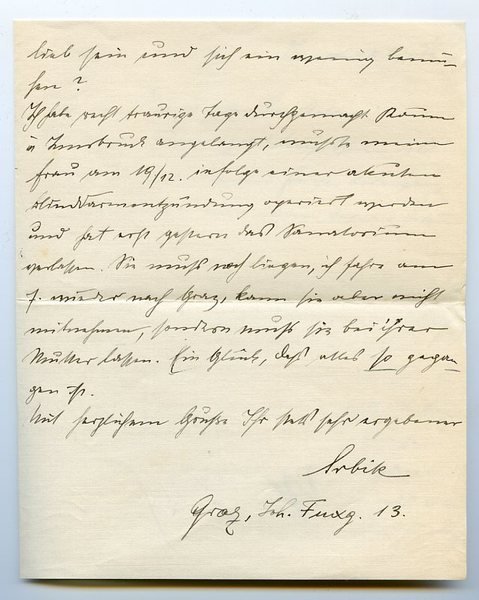 lieb sein und sich ein wenig bemü-
hen?
Ich habe recht traurige Tage durchgemacht. Kaum
in Innsbruck angelangt, mußte meine
Frau am 19/12. infolge einer akuten
Blinddarmentzündung operiert werden
und hat erst gestern das Sanatorium
verlassen. Sie muß noch liegen, ich fahre am
7. wieder nach Graz, kann sie aber nicht
mitnehmen, sondern muß sie bei ihrer
Mutter lassen. Ein Glück, daß alles so gegan
gen ist.
Mit herzlichem Gruße Ihr stets sehr ergebener
Graz, Joh. 13.